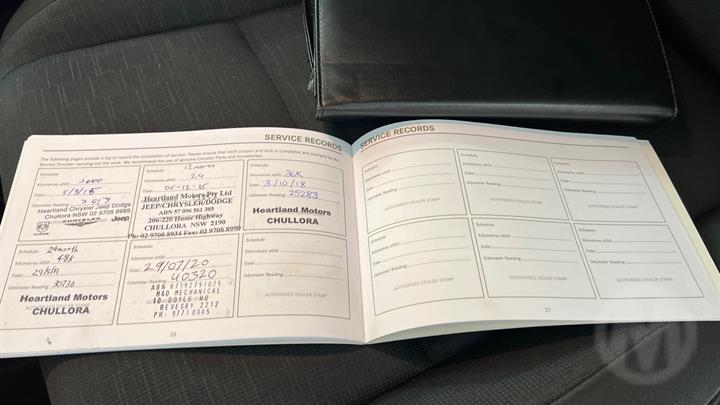 SERVICE RECORDS
The following pages provide a log to record the completion of service. Please ensure that each coupon and stub is completed and stamped by the
Service Provider carrying out the work. We recommend the use of genuine Chrysler Parts and Accessories.
Schedule:
Kilometres x000
Date:
Odometer Reading:
Heartland Chrysler Jeep Dodge
Chullora NSW 02 9708 8999
CHRYSLER Jeep
24
06-12-16
Heartland Motors Pty Ltd
JEEP/CHRYSLER/DODGE
ABN 57 096 561 365
206-220 Hume Highway
CHULLORA NSW 2190
Ph: 02 9708 8934 Fax: 02 9708 8999
Schedule:
Kilometres x000 36K
Date: 3/10/18
Odometer Reading: 25283
Heartland Motors
CHULLORA
Schedule: 24month
Kilometres x000 48K
Date:
Odometer Reading: 30730
Heartland Motors
CHULLORA
Schedule:
Kilometres x000
Date: 29/07/20
Odometer Reading: 40320
ABN 87192791075
M&D MECHANICAL
10 DOYLE RD
REVESBY 2212
PH: 9771 0045
Schedule:
Kilometres x000
Date:
Odometer Reading:
AUTHORISED DEALER STAMP
24
SERVICE RECORDS
Schedule:
Kilometres x000
Date:
Odometer Reading:
AUTHORISED DEALER STAMP
Schedule:
Kilometres x000
Date:
Odometer Reading:
AUTHORISED DEALER STAMP
Schedule:
Kilometres x000
Date:
Odometer Reading:
AUTHORISED DEALER STAMP
Schedule:
Kilometres x000
Date:
Odometer Reading:
AUTHORISED DEALER STAMP
Schedule:
Kilometres x000
Date:
Odometer Reading:
AUTHORISED DEALER STAMP
Schedule:
Kilometres x000
Date:
Odometer Reading:
AUTHORISED DEALER STAMP
M